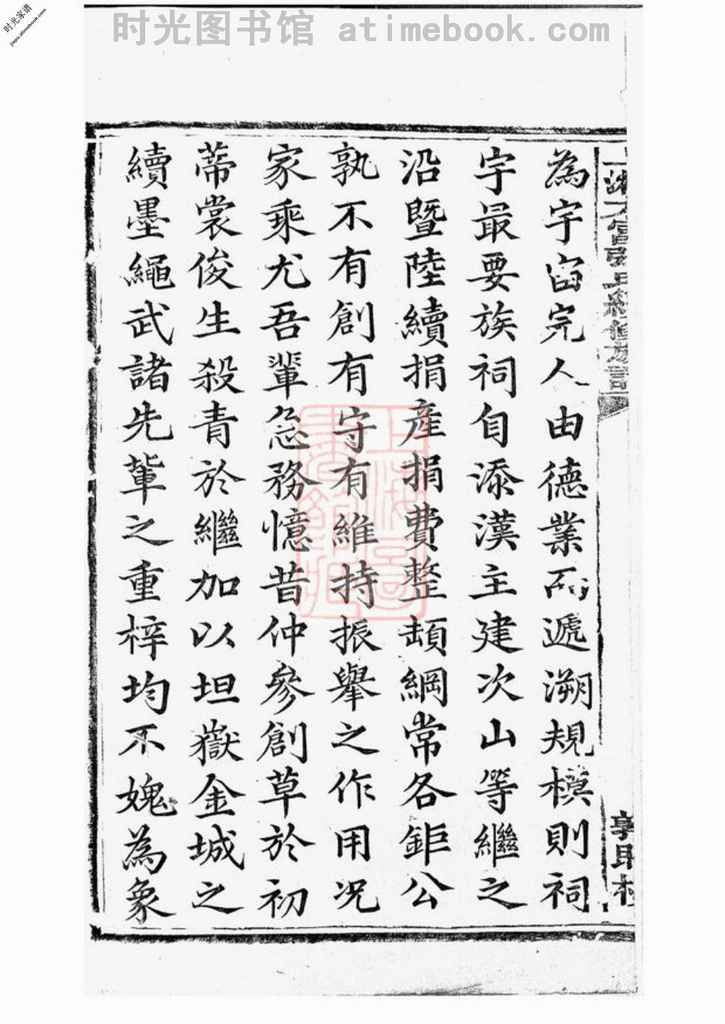 时光图书馆 atimebook.com
时光家谱
為宇宙完人由德業而遞溯規模則祠
宇最要族祠自添漢主建次山等繼之
沿暨陸續捐產捐費整頓綱常各鉅公
孰不有創有守有維持振舉之作用况
家乘尤吾輩急務憶昔仲參創草於初
蒂裳俊生殺青於繼加以坦嶽金城之
續墨繩武諸先輩之重梓均不媿為象